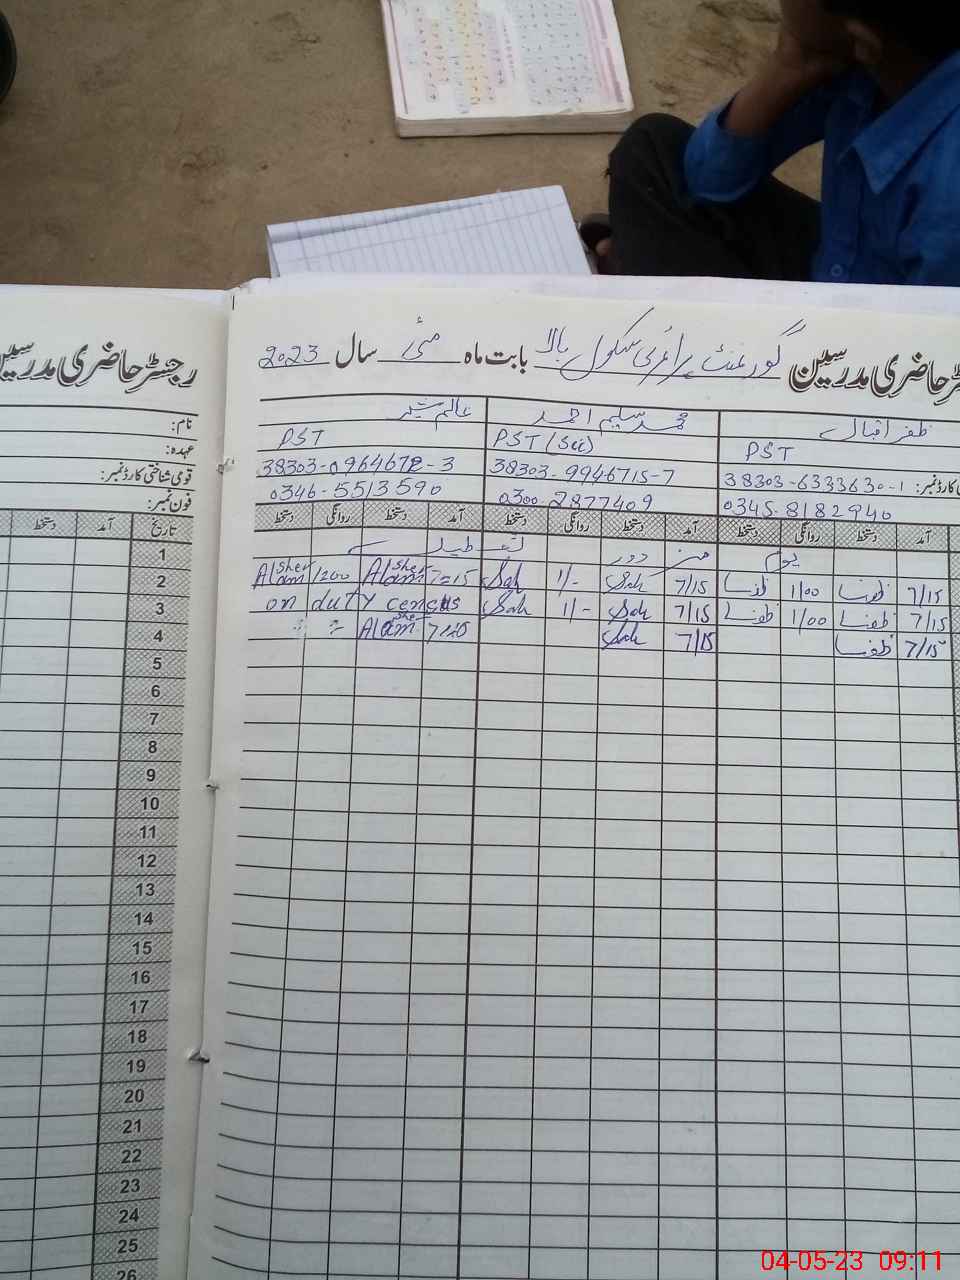 رجسٹر حاضری مدرسین
گورنمنٹ پرائمری سکول بالا بابت ماہ مئی سال 2023
نام:
عہدہ:
قومی شناختی کارڈ نمبر:
فون نمبر:
ظفر اقبال محمد سلیم احمد عالم شیر
PST PST (Sci) PST
38303-6333630-1 38303-9946715-7 38303-0964672-3
0345-8182940 0300-2877409 0346-5513590
آمد دستخط روانگی دستخط آمد دستخط روانگی دستخط آمد دستخط روانگی دستخط
تاریخ آمد دستخط
1 یوم مزدور تعطیل
2 7/15 1/00 7/15 1/- 7=15 Alam Sher 1200 Alam Sher
3 7/15 1/00 7/15 1/- on duty census
4 7/15 7/15 Alam Sher
5
6
7
8
9
10
11
12
13
14
15
16
17
18
19
20
21
22
23
24
25
26
04-05-23 09:11